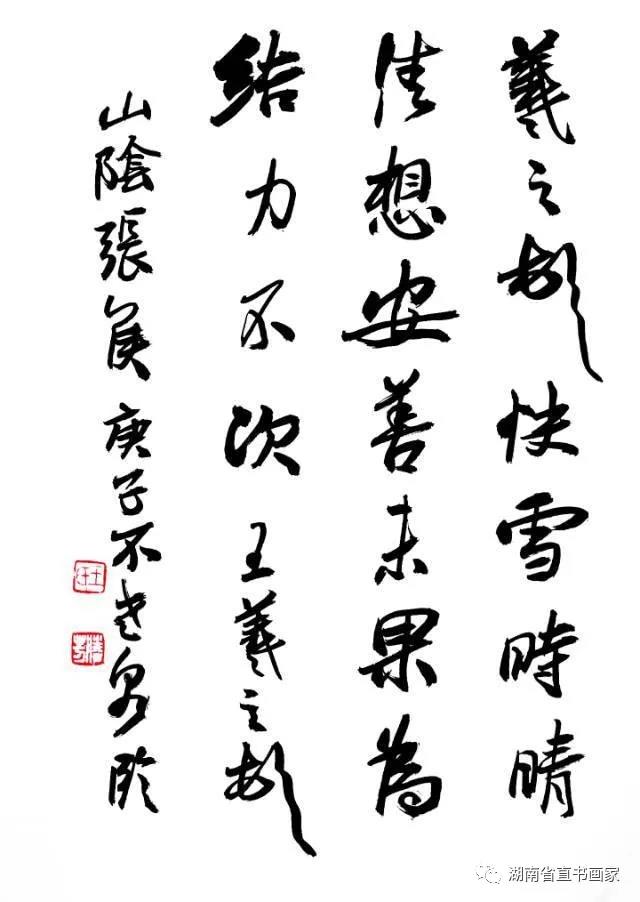 羲之頓首快雪時晴
佳想安善未果為
結力不次王羲之頓首
山陰張侯庚子不老泉臨
湖南省直书画家